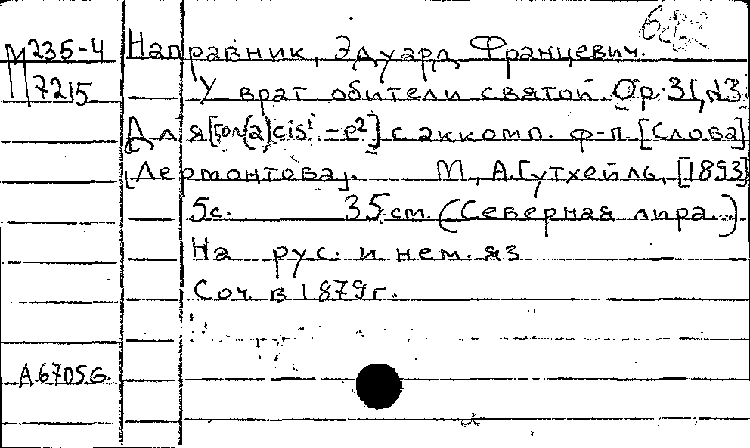 М 235-4 Направник, Эдуард Францевич.
7215 У врат обители святой. Op. 31, N3.
Для [гол(а) cis¹ - e²] с аккомп. ф-п [Слова]
[Лермонтова]. М., А. Гутхейль, [1893]
5с. 35 cm. (Северная лира.)
На рус. и нем. яз
Соч. в 1879 г.